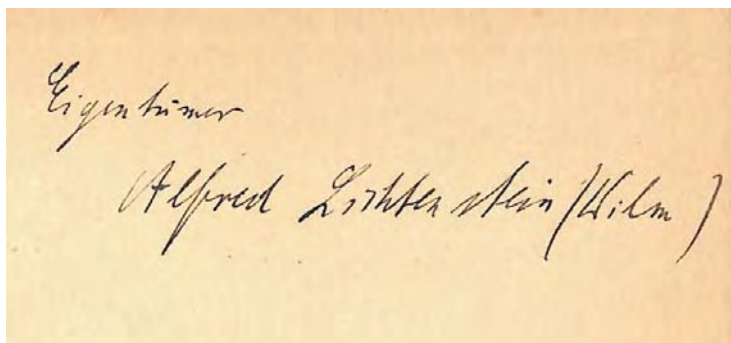 Eigentümer
Alfred Lichtenstein (Wilm)